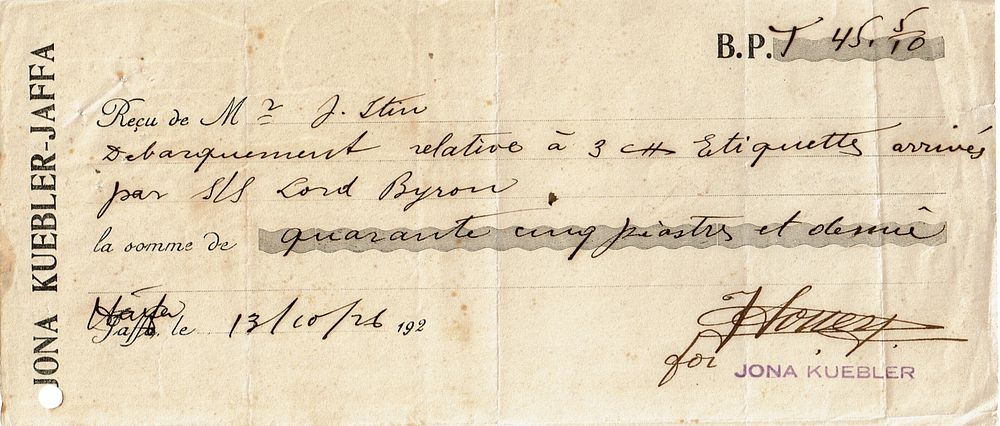 JONA KUEBLER-JAFFA
B.P.T 45. 5/10
Reçu de Mr J. Stin
Debarquement relative à 3 Etiquettes arrivés
par S/S Lord Byron
la somme de quarante cinq piastres et demie
Haifa
Jaffa, le 13/10/26 192
for JONA KUEBLER